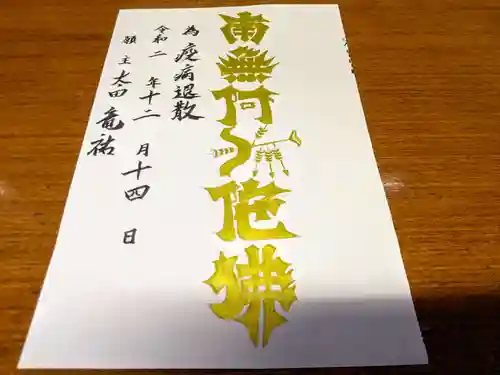 南無阿弥陀佛
為疫病退散
令和二年十二月十四日
願主太田竜祐